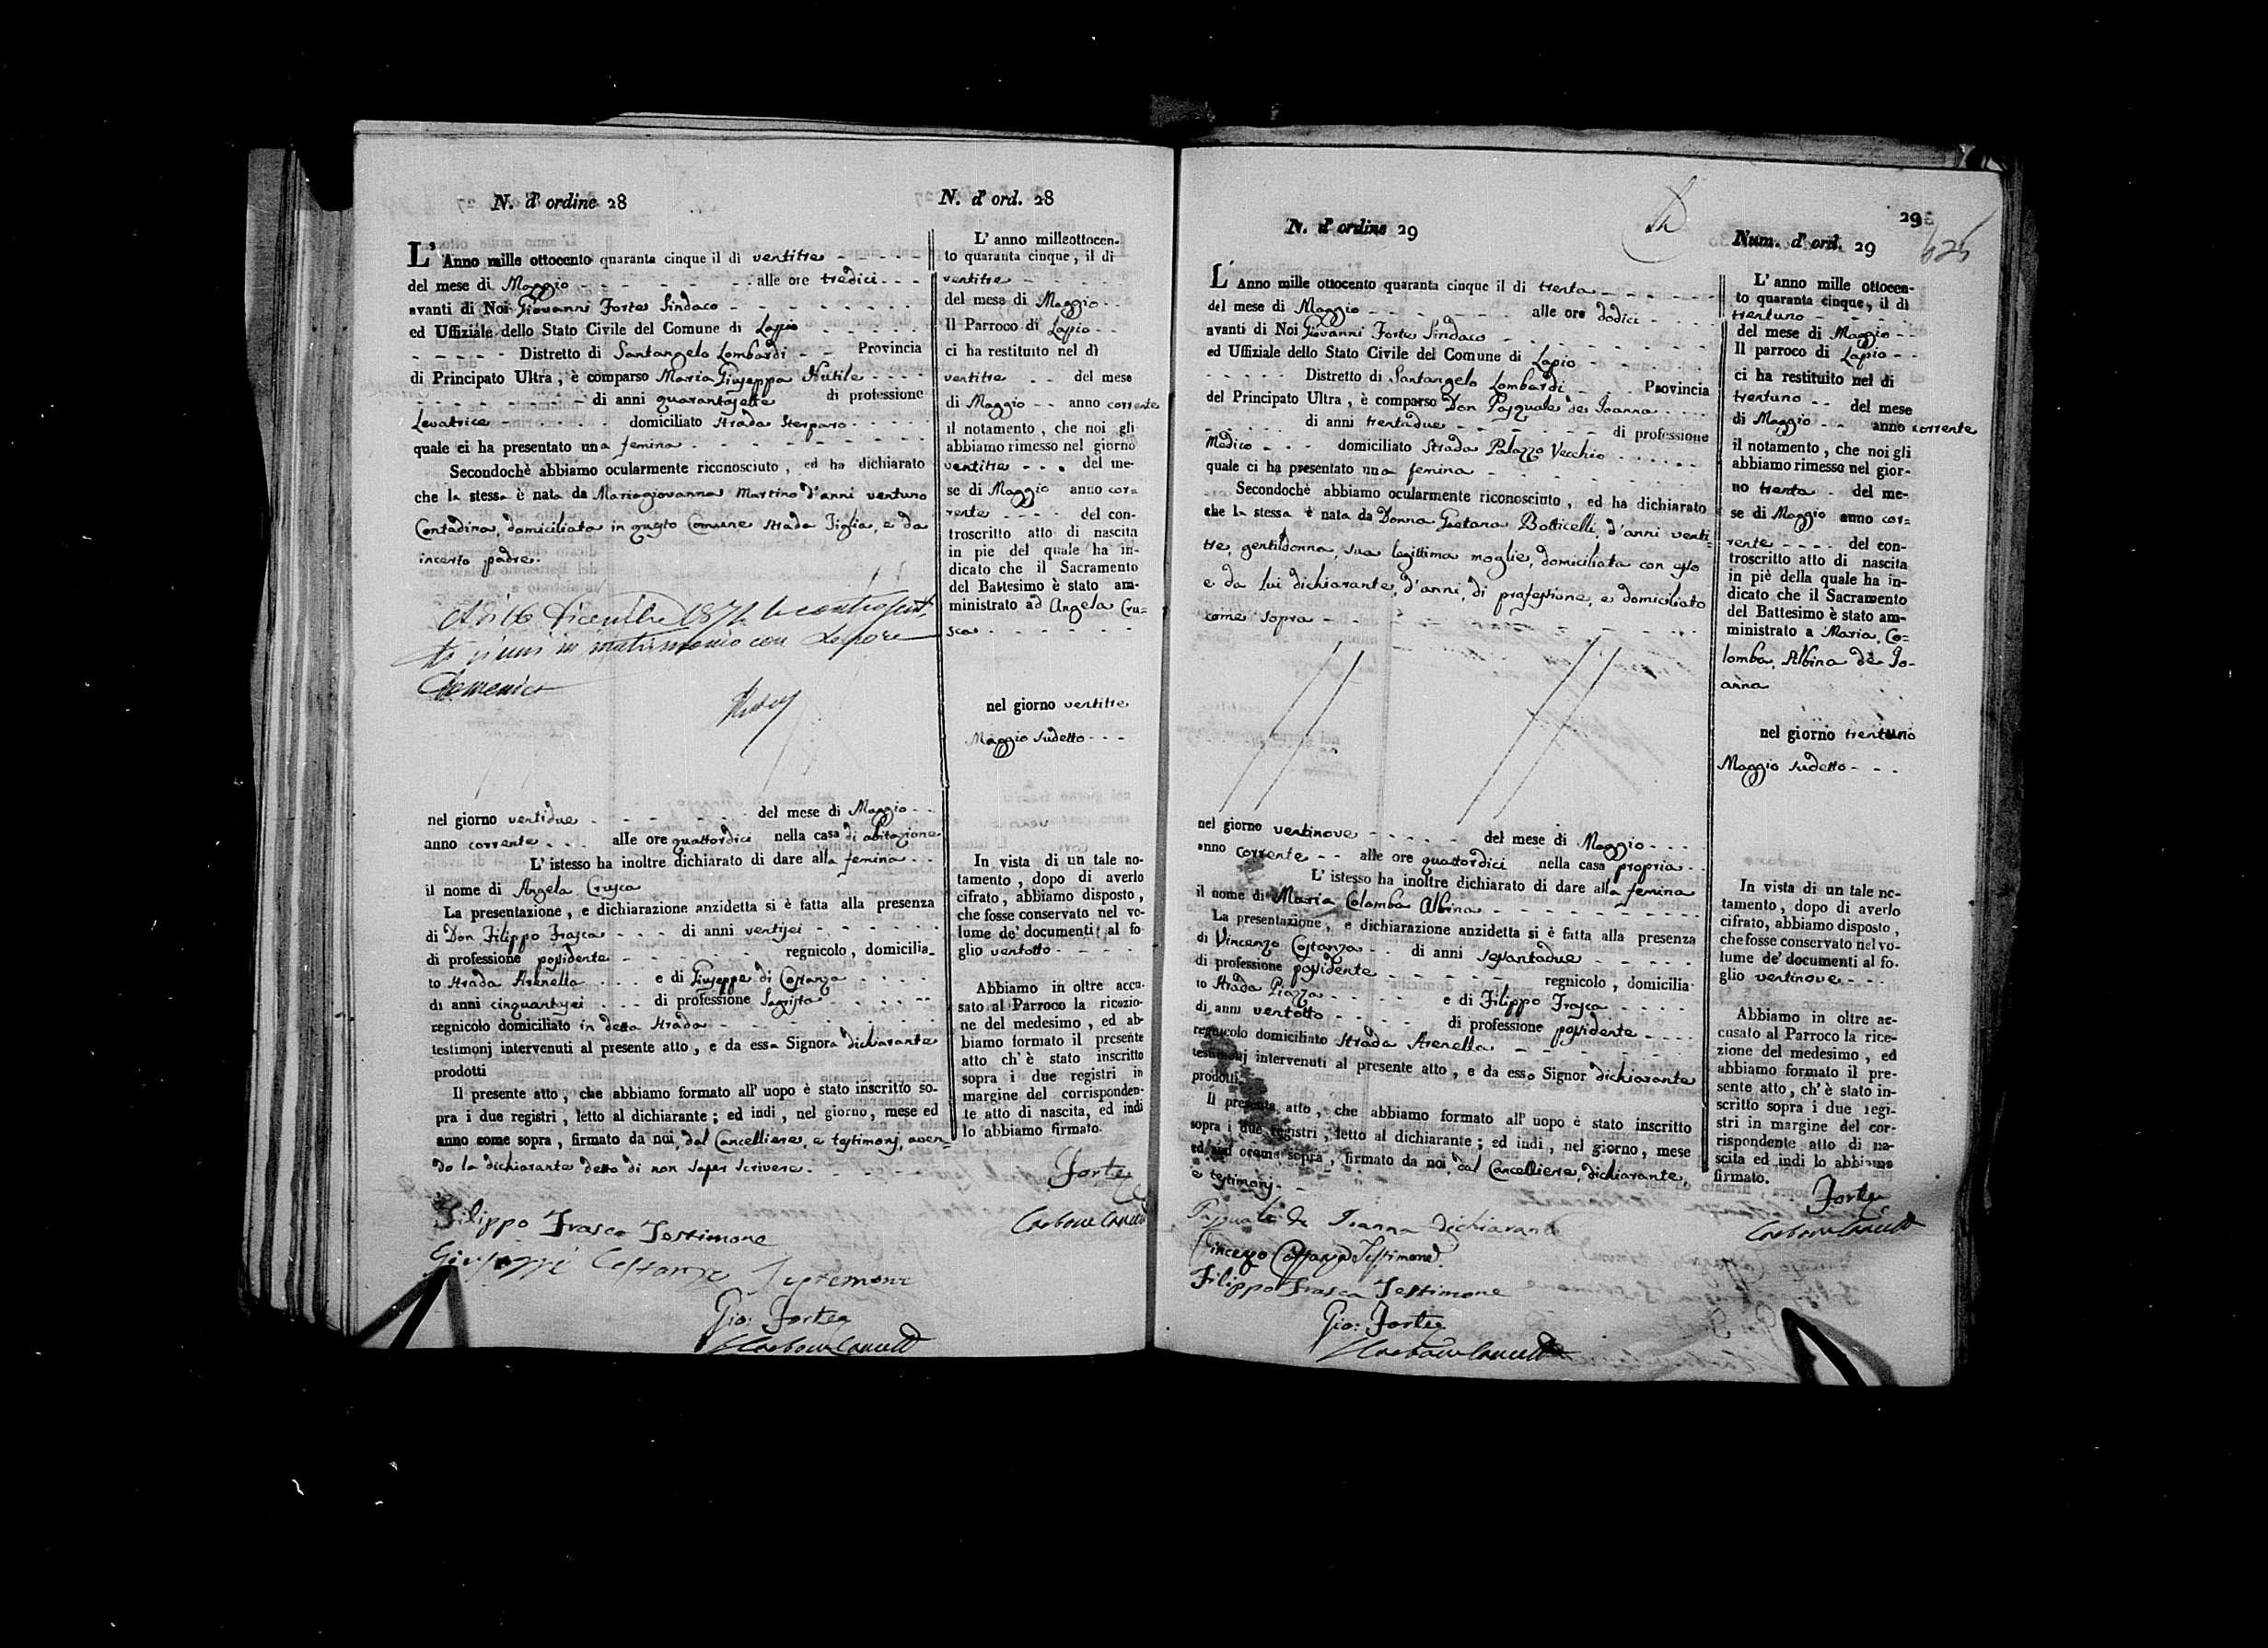 N. d' ordine 28
L' Anno mille ottocento quaranta cinque il di ventitre
del mese di Maggio alle ore tredici
avanti di Noi Giovanni Forte Sindaco
ed Uffiziale dello Stato Civile del Comune di Lapio
Distretto di Santangelo Lombardi Provincia
di Principato Ultra, è comparso Maria Giuseppa Nutile
di anni quarantasette di professione
Levatrice domiciliato Strada Sterparo
quale ci ha presentato una femina
Secondochè abbiamo ocularmente riconosciuto, ed ha dichiarato
che la stessa è nata da Mariagiovanna Martino d'anni ventuno
Contadina, domiciliata in questo Comune Strada Tiglia, e da
incerto padre.
Domenico
nel giorno ventidue del mese di Maggio
anno corrente alle ore quattordici nella casa di abitazione
L' istesso ha inoltre dichiarato di dare alla femina
il nome di Angela Crusca
La presentazione, e dichiarazione anzidetta si è fatta alla presenza
di Don Filippo Frasca di anni ventisei
di professione possidente regnicolo, domicilia-
to Strada Arenella e di Giuseppe di Costanza
di anni cinquantasei di professione Sagrista
regnicolo domiciliato in detta Strada
testimonj intervenuti al presente atto, e da essa Signora dichiarante
prodotti
Il presente atto, che abbiamo formato all' uopo è stato inscritto so-
pra i due registri, letto al dichiarante; ed indi, nel giorno, mese ed
anno come sopra, firmato da noi, dal Cancelliere, e testimonj, aven-
do la dichiarante detto di non saper scrivere.
Filippo Frasca Testimone
Giuseppe Costanza Testemone
Gio: Forte
Carbone Cancell
N. d' ord. 28
L' anno milleottocen-
to quaranta cinque, il di
ventitre
del mese di Maggio
Il Parroco di Lapio
ci ha restituito nel dì
ventitre del mese
di Maggio anno corrente
il notamento, che noi gli
abbiamo rimesso nel giorno
ventitre del me-
se di Maggio anno cor=
rente del con-
troscritto atto di nascita
in pie del quale ha in-
dicato che il Sacramento
del Battesimo è stato am-
ministrato ad Angela Cru=
sca
nel giorno ventitre
Maggio sudetto
In vista di un tale no-
tamento, dopo di averlo
cifrato, abbiamo disposto,
che fosse conservato nel vo-
lume de' documenti al fo
glio ventotto
Abbiamo in oltre accu-
sato al Parroco la ricezio-
ne del medesimo, ed ab-
biamo formato il presente
atto ch' è stato inscritto
sopra i due registri in
margine del corrisponden-
te atto di nascita, ed indi
lo abbiamo firmato.
Forte
Carbone Cancell
29
N. d' ordine 29
L' Anno mille ottocento quaranta cinque il di trenta
del mese di Maggio alle ore dodici
avanti di Noi Giovanni Forte Sindaco
ed Uffiziale dello Stato Civile del Comune di Lapio
Distretto di Santangelo Lombardi Provincia
del Principato Ultra, è comparso Don Pasquale de Joanna
di anni trentadue di professione
Medico domiciliato Strada Palazzo Vecchio
quale ci ha presentato una femina
Secondochè abbiamo ocularmente riconosciuto, ed ha dichiarato
che la stessa è nata da Donna Gaetana Botticelli, d'anni venti=
tre, gentildonna, sua legittima moglie, domiciliata con esso
e da lui dichiarante, d'anni, di professione, e domiciliato
come sopra
nel giorno ventinove del mese di Maggio
anno corrente alle ore quattordici nella casa propria
L' istesso ha inoltre dichiarato di dare alla femina
il nome di Maria Colomba Albina
La presentazione, e dichiarazione anzidetta si è fatta alla presenza
di Vincenzo Costanza di anni sessantadue
di professione possidente regnicolo, domicilia-
to Strada Piazza e di Filippo Frasca
di anni ventotto di professione possidente
regnicolo domiciliato Strada Arenella
testimonj intervenuti al presente atto, e da esso Signor dichiarante
prodotti
Il presente atto, che abbiamo formato all' uopo è stato inscritto
sopra i due registri, letto al dichiarante; ed indi, nel giorno, mese
sopra, firmato da noi, dal Cancelliere, dichiarante,
e testimonj.
Pasquale de Joanna dichiarante
Vincenzo Costanza Testimone
Filippo Frasca Testimone
Gio: Forte
Carbone Cancell
Num. d' ord. 29
L' anno mille ottocen-
to quaranta cinque, il dì
trentuno
del mese di Maggio
Il parroco di Lapio
ci ha restituito nel di
trentuno del mese
di Maggio anno corrente
il notamento, che noi gli
abbiamo rimesso nel gior-
no trenta del me-
se di Maggio anno cor=
rente del con-
troscritto atto di nascita
in piè della quale ha in-
dicato che il Sacramento
del Battesimo è stato am-
ministrato a Maria, Co=
lomba, Albina de Jo-
anna
nel giorno trentuno
Maggio sudetto
In vista di un tale no-
tamento, dopo di averlo
cifrato, abbiamo disposto,
che fosse conservato nel vo-
lume de' documenti al fo-
glio ventinove
Abbiamo in oltre ac-
cusato al Parroco la rice-
zione del medesimo, ed
abbiamo formato il pre-
sente atto, ch' è stato in-
scritto sopra i due regi-
stri in margine del cor-
rispondente atto di na-
scita ed indi lo abbiamo
firmato.
Forte
Carbone Cancell